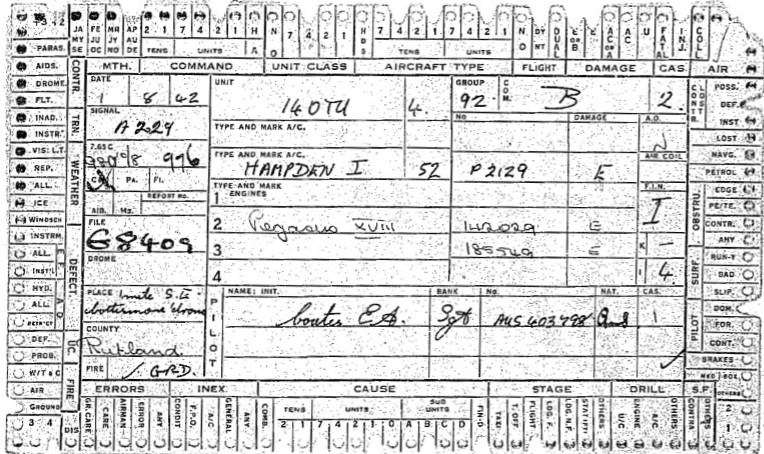 JA FE MR AP 2 1 7 4 2 1 H N 7 4 2 1 H 7 4 2 1 7 4 2 1 N DY DUAL E or B AC or A ACC U FATAL INJ. COLL
MY JU JY AU TENS UNITS A O D TENS UNITS O NT
SE OC NO DE
PARAS. CONTR. MTH. COMMAND UNIT CLASS AIRCRAFT TYPE FLIGHT DAMAGE CAS. AIR
AIDS. DATE UNIT GROUP COM. CONTR. POSS.
DROME. 1 8 42 14 OTU 4. 92. B 2. DEF.
FLT. SIGNAL No DAMAGE A.O. INST
INAD. TRN. A 229 TYPE AND MARK A/C. LOST
INSTR. AIR COLL NAVG.
VIS: L.T. WEATHER 765C 996 TYPE AND MARK A/C. PETROL
REP. HAMPDEN I 52 P2129 E
ALL. PA. FI. TYPE AND MARK ENGINES F.I.N. EDGE
ICE REPORT No. 1 I OBSTRU. PE/TE.
WINDSCN AIB. Ms. 2 Pegasus XVIII E CONTR.
INSTRM. FILE G8409 3 185549 E K - ANY
ALL. DEFECT DROME 4 I 4. SURF. RUN-Y
INST'L BAD
HYD. PLACE 1 mile S.E. NAME: INIT. RANK No. NAT. CAS. SLIP.
ALL PILOT Coutes E.A. Sgt AUS 403798 1 PILOT DOM.
COUNTY FOR.
DEF. UC. Rutland CONT.
PROB. BRAKES
W/T & C FIRE FIRE / GRD.
AIR ERRORS INEX. CAUSE STAGE DRILL S.F. OTHERS
GROUND GR. CARE CARE AIRMAN ERROR ANY CONDIT F.P.O. A/C GENERAL ANY COMB. TENS UNITS SUB UNITS FIN-D TAXI T.OFF FLIGHT LDG. F. LDG. N.F. OTHERS U/C ENGINE A/C OTHERS CONTRA OTHERS 2
3 4 DIS 2 1 7 4 2 1 0 A B C D 1